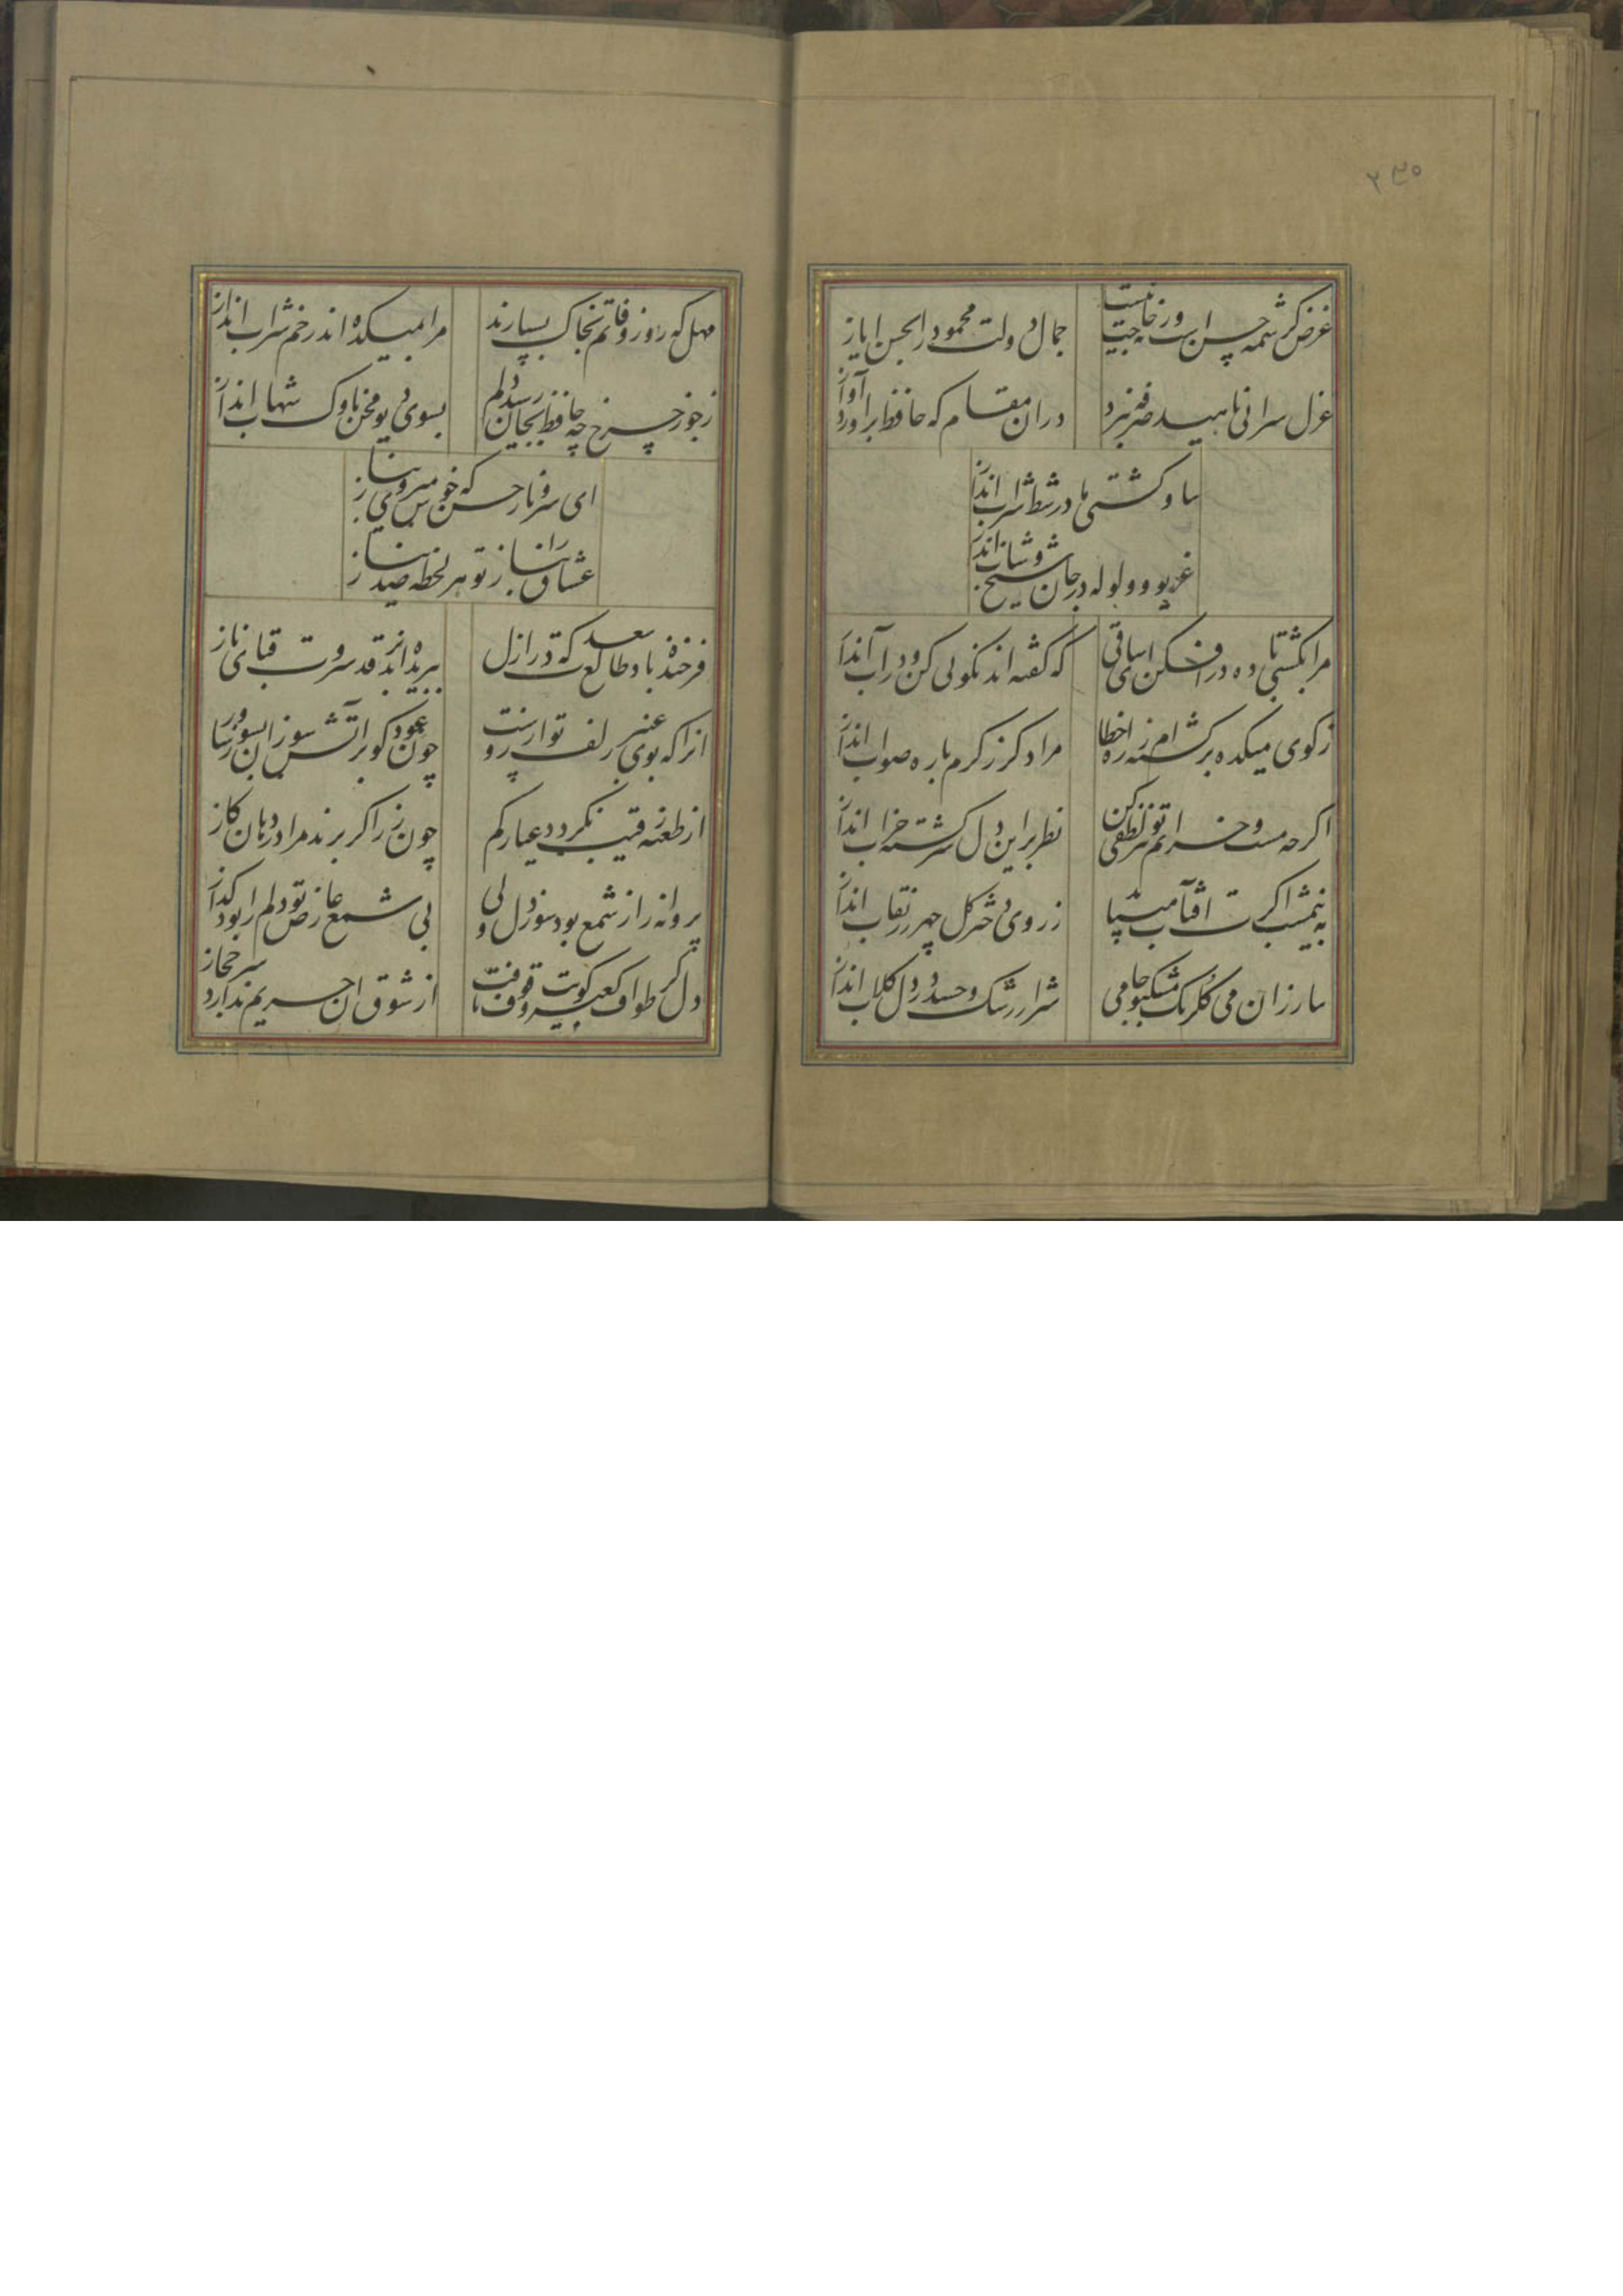 ۲۳۵
غرض کرشمه حسن است ورنه حاجت نیست جمال دولت محمود را بحسن ایاز
غزل سرائی ناهید صرفه نبرد دران مقام که حافظ براورد آواز
بیا و کشتی ما در شط شراب انداز
غریو و ولوله در جان شیخ و شاب انداز
مرا بکشتی باده در افکن ای ساقی که گفته اند نکوئی کن و در آب انداز
ز کوی میکده برگشته ام ز راه خطا مرا دگر ز کرم با ره صواب انداز
اگرچه مست و خرابم تو نیز لطفی کن نظر براین دل سرگشته خراب انداز
به نیمشب اگرت آفتاب میباید ز روی دختر گلچهر رز نقاب انداز
بیار زان می گلرنگ مشکبو جامی شرار رشک و حسد در دل گلاب انداز
مهل که روز وفاتم بخاک بسپارند مرا بمیکده اندر خم شراب انداز
ز جور چرخ چو حافظ بجان رسید دلم بسوی دیو محن ناوک شهاب انداز
ای سرو ناز حسن که خوش میروی بناز
عشاق را بناز تو هر لحظه صد نیاز
فرخنده باد طالع سعدت که در ازل ببریده اند بر قد سروت قبای ناز
انرا که بوی عنبر زلف تو ارزوست چون عود گو بر آتش سوزان بسوز و ساز
از طعنه رقیب نگردد عیار کم چون زر اگر برند مرا در دهان گاز
پروانه را ز شمع بود سوز دل ولی بی شمع عارض تو دلم را بود گداز
دل کز طواف کعبه کویت وقوف یافت از شوق ان حریم ندارد سر حجاز